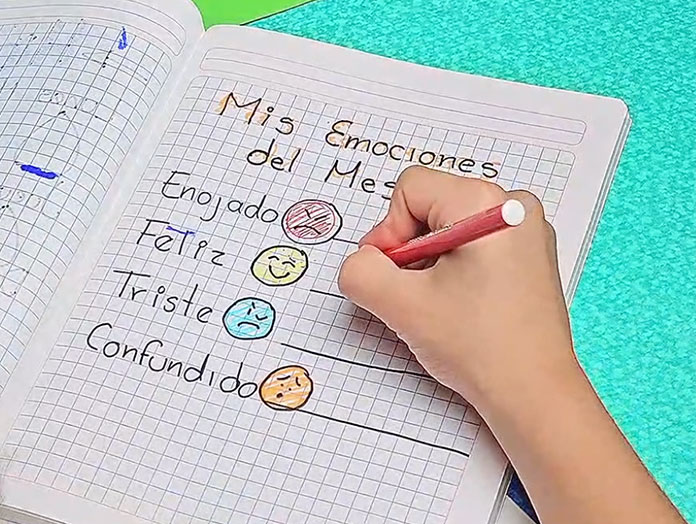 Mis Emociones
del Mes
Enojado
Feliz
Triste
Confundido